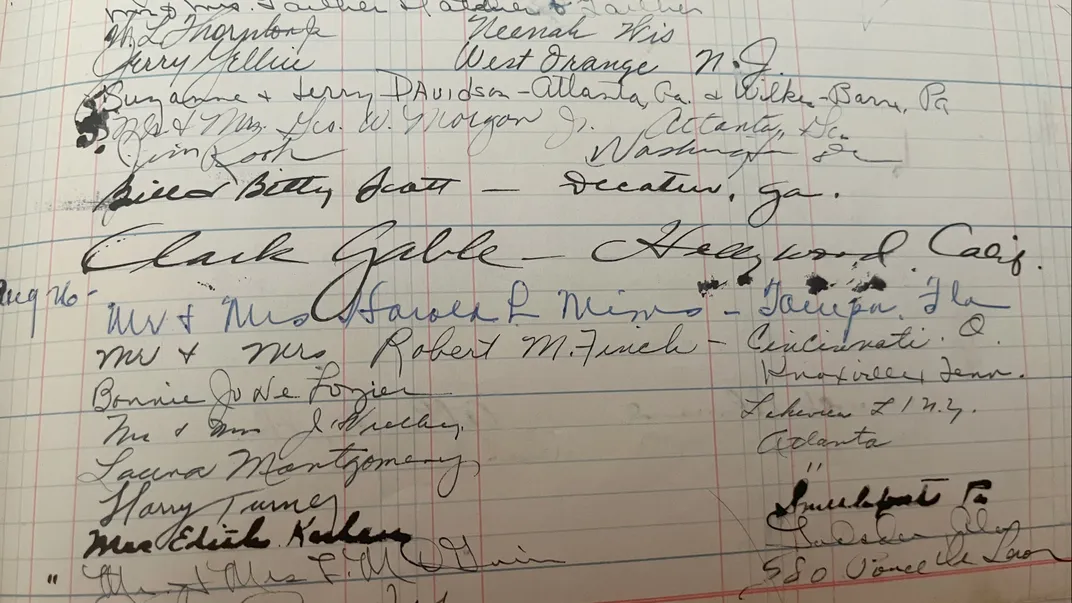 Mr & Mrs.
W. L. Thornton Jr Neenah Wis
Jerry Yellin West Orange N.J.
Suzanne & Jerry Davidson - Atlanta, Ga. & Wilkes-Barre, Pa
Mr & Mrs. Geo. W. Morgan Jr. Atlanta, Ga.
Jim Washington
Bill & Betty Scott - Decatur, Ga.
Clark Gable - Hollywood. Calif.
Aug 26 - Mr & Mrs Harold L Mims - Tampa, Fla
Mr & Mrs Robert M. Finch - Cincinnati. O.
Bonnie June Lozier Knoxville, Tenn.
Mr & Mrs J. Lakeview L I N.Y.
Laura Montgomery Atlanta
Harry Turner "
Mrs Edith Smethport Pa
" Mr. & Mrs 580 Ponce de Leon